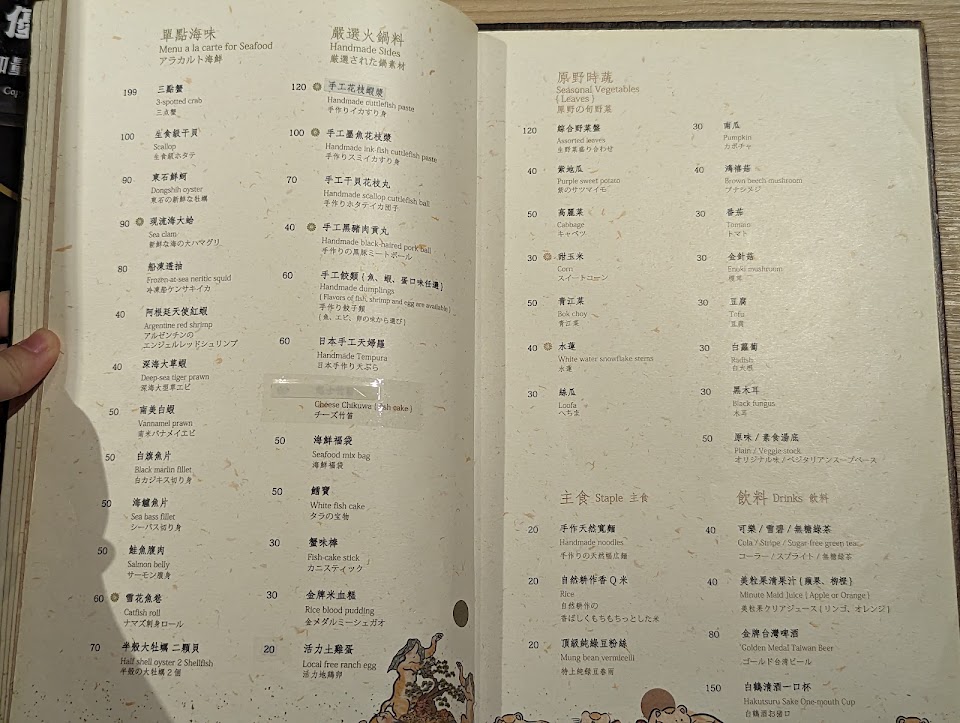 單點海味
Menu a la carte for Seafood
アラカルト海鮮
199 三點蟹
3-spotted crab
三点蟹
100 生食級干貝
Scallop
生食級ホタテ
90 東石鮮蚵
Dongshih oyster
東石の新鮮な牡蠣
90 現流海大蛤
Sea clam
新鮮な海の大ハマグリ
80 船凍透抽
Frozen-at-sea neritic squid
冷凍船ケンサキイカ
40 阿根廷天使紅蝦
Argentine red shrimp
アルゼンチンの
エンジェルレッドシュリンプ
40 深海大草蝦
Deep-sea tiger prawn
深海大型草エビ
50 南美白蝦
Vannamei prawn
南米バナメイエビ
50 白旗魚片
Black marlin fillet
白カジキス切り身
50 海鱸魚片
Sea bass fillet
シーバス切り身
50 鮭魚腹肉
Salmon belly
サーモン腹身
60 雪花魚卷
Catfish roll
ナマズ刺身ロール
70 半殼大牡蠣 二顆貝
Half shell oyster 2 Shellfish
半殻の大牡蠣2個
嚴選火鍋料
Handmade Sides
厳選された鍋素材
120 手工花枝蝦漿
Handmade cuttlefish paste
手作りイカすり身
100 手工墨魚花枝漿
Handmade ink fish cuttlefish paste
手作りスミイカすり身
70 手工干貝花枝丸
Handmade scallop cuttlefish ball
手作りホタテイカ団子
40 手工黑豬肉貢丸
Handmade black-haired pork ball
手作りの黒豚ミートボール
60 手工餃類 ( 魚、蝦、蛋口味任選 )
Handmade dumplings
( Flavors of fish, shrimp and egg are available )
手作り餃子類
( 魚、エビ、卵の味から選び )
60 日本手工天婦羅
Handmade Tempura
日本手作り天ぷら
Cheese Chikuwa ( fish cake )
チーズ竹笛
50 海鮮福袋
Seafood mix bag
海鮮福袋
50 鱈寶
White fish cake
タラの宝物
30 蟹味棒
Fish-cake stick
カニスティック
30 金牌米血糕
Rice blood pudding
金メダルミーシェガオ
20 活力土雞蛋
Local free ranch egg
活力地鶏卵
原野時蔬
Seasonal Vegetables
( Leaves )
原野の旬野菜
120 綜合野菜盤
Assorted leaves
生野菜盛り合わせ
40 紫地瓜
Purple sweet potato
紫のサツマイモ
50 高麗菜
Cabbage
キャベツ
30 甜玉米
Corn
スイートコーン
50 青江菜
Bok choy
青江菜
40 水蓮
White water snowflake stems
水蓮
30 絲瓜
Loofa
へちま
30 南瓜
Pumpkin
カボチャ
40 鴻禧菇
Brown beech mushroom
ブナシメジ
30 番茄
Tomato
トマト
30 金針菇
Enoki mushroom
榎茸
30 豆腐
Tofu
豆腐
30 白蘿蔔
Radish
白大根
30 黑木耳
Black fungus
木耳
50 原味 / 素食湯底
Plain / Veggie stock
オリジナル味 / ベジタリアンスープベース
主食 Staple 主食
20 手作天然寬麵
Handmade noodles
手作りの天然幅広麺
20 自然耕作香Q米
Rice
自然耕作の
香ばしくもちもちっとした米
20 頂級純綠豆粉絲
Mung bean vermicelli
特上純緑豆春雨
飲料 Drinks 飲料
40 可樂 / 雪碧 / 無糖綠茶
Cola / Stripe / Sugar-free green tea
コーラー / スプライト / 無糖緑茶
40 美粒果清果汁 ( 蘋果、柳橙 )
Minute Maid Juice ( Apple or Orange )
美粒果クリアジュース ( リンゴ、オレンジ )
80 金牌台灣啤酒
'Golden Medal Taiwan Beer
ゴールド台湾ビール
150 白鶴清酒一口杯
Hakutsuru Sake One-mouth Cup
白鶴酒お猪口